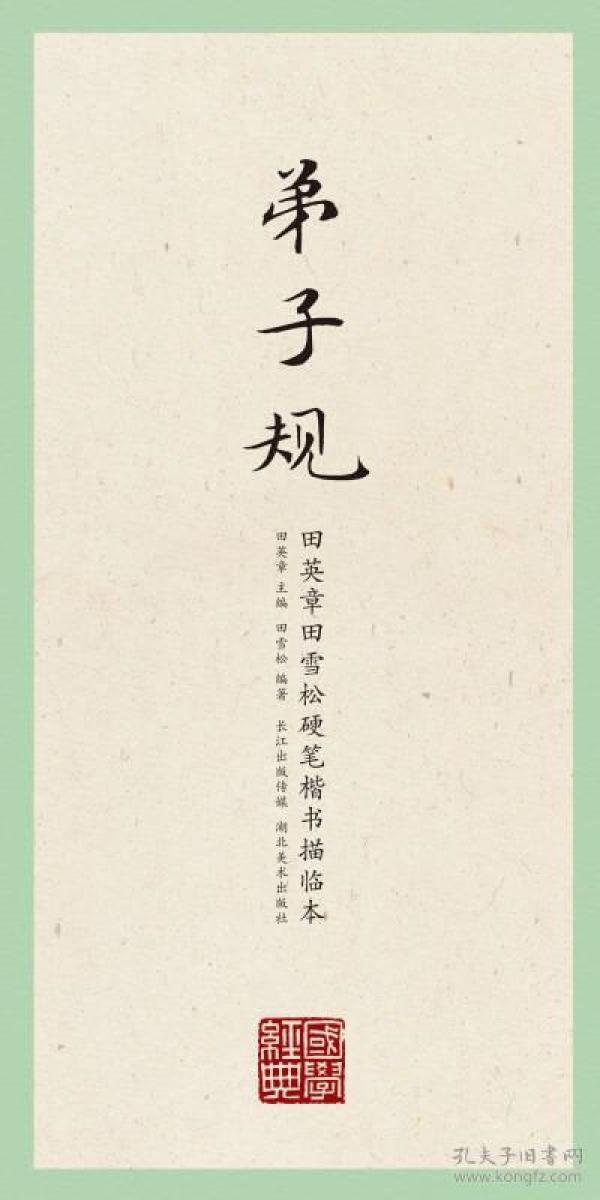 弟子规
田英章田雪松硬笔楷书描临本
田英章 主编 田雪松 编著 长江出版传媒 湖北美术出版社
國學經典
孔夫子旧書网
www.kongfz.com